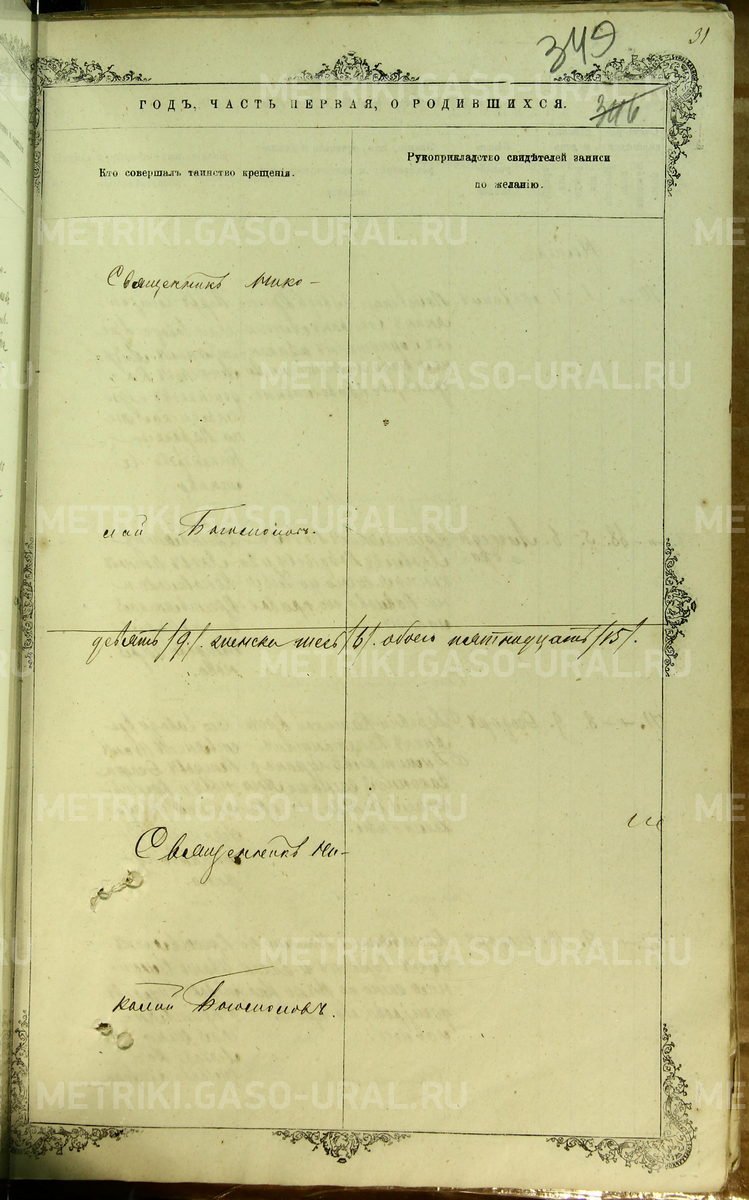 31
349
346
ГОДЪ, ЧАСТЬ ПЕРВАЯ, О РОДИВШИХСЯ.
Кто совершалъ таинство крещенія.
Рукоприкладство свидѣтелей записи
по желанію.
Священникъ Нико-
лай Богомоловъ.
девять /9/. женска шесть /6/. обоего пятнадцать /15/.
Священникъ Ни-
колай Богомоловъ.
METRIKI.GASO-URAL.RU